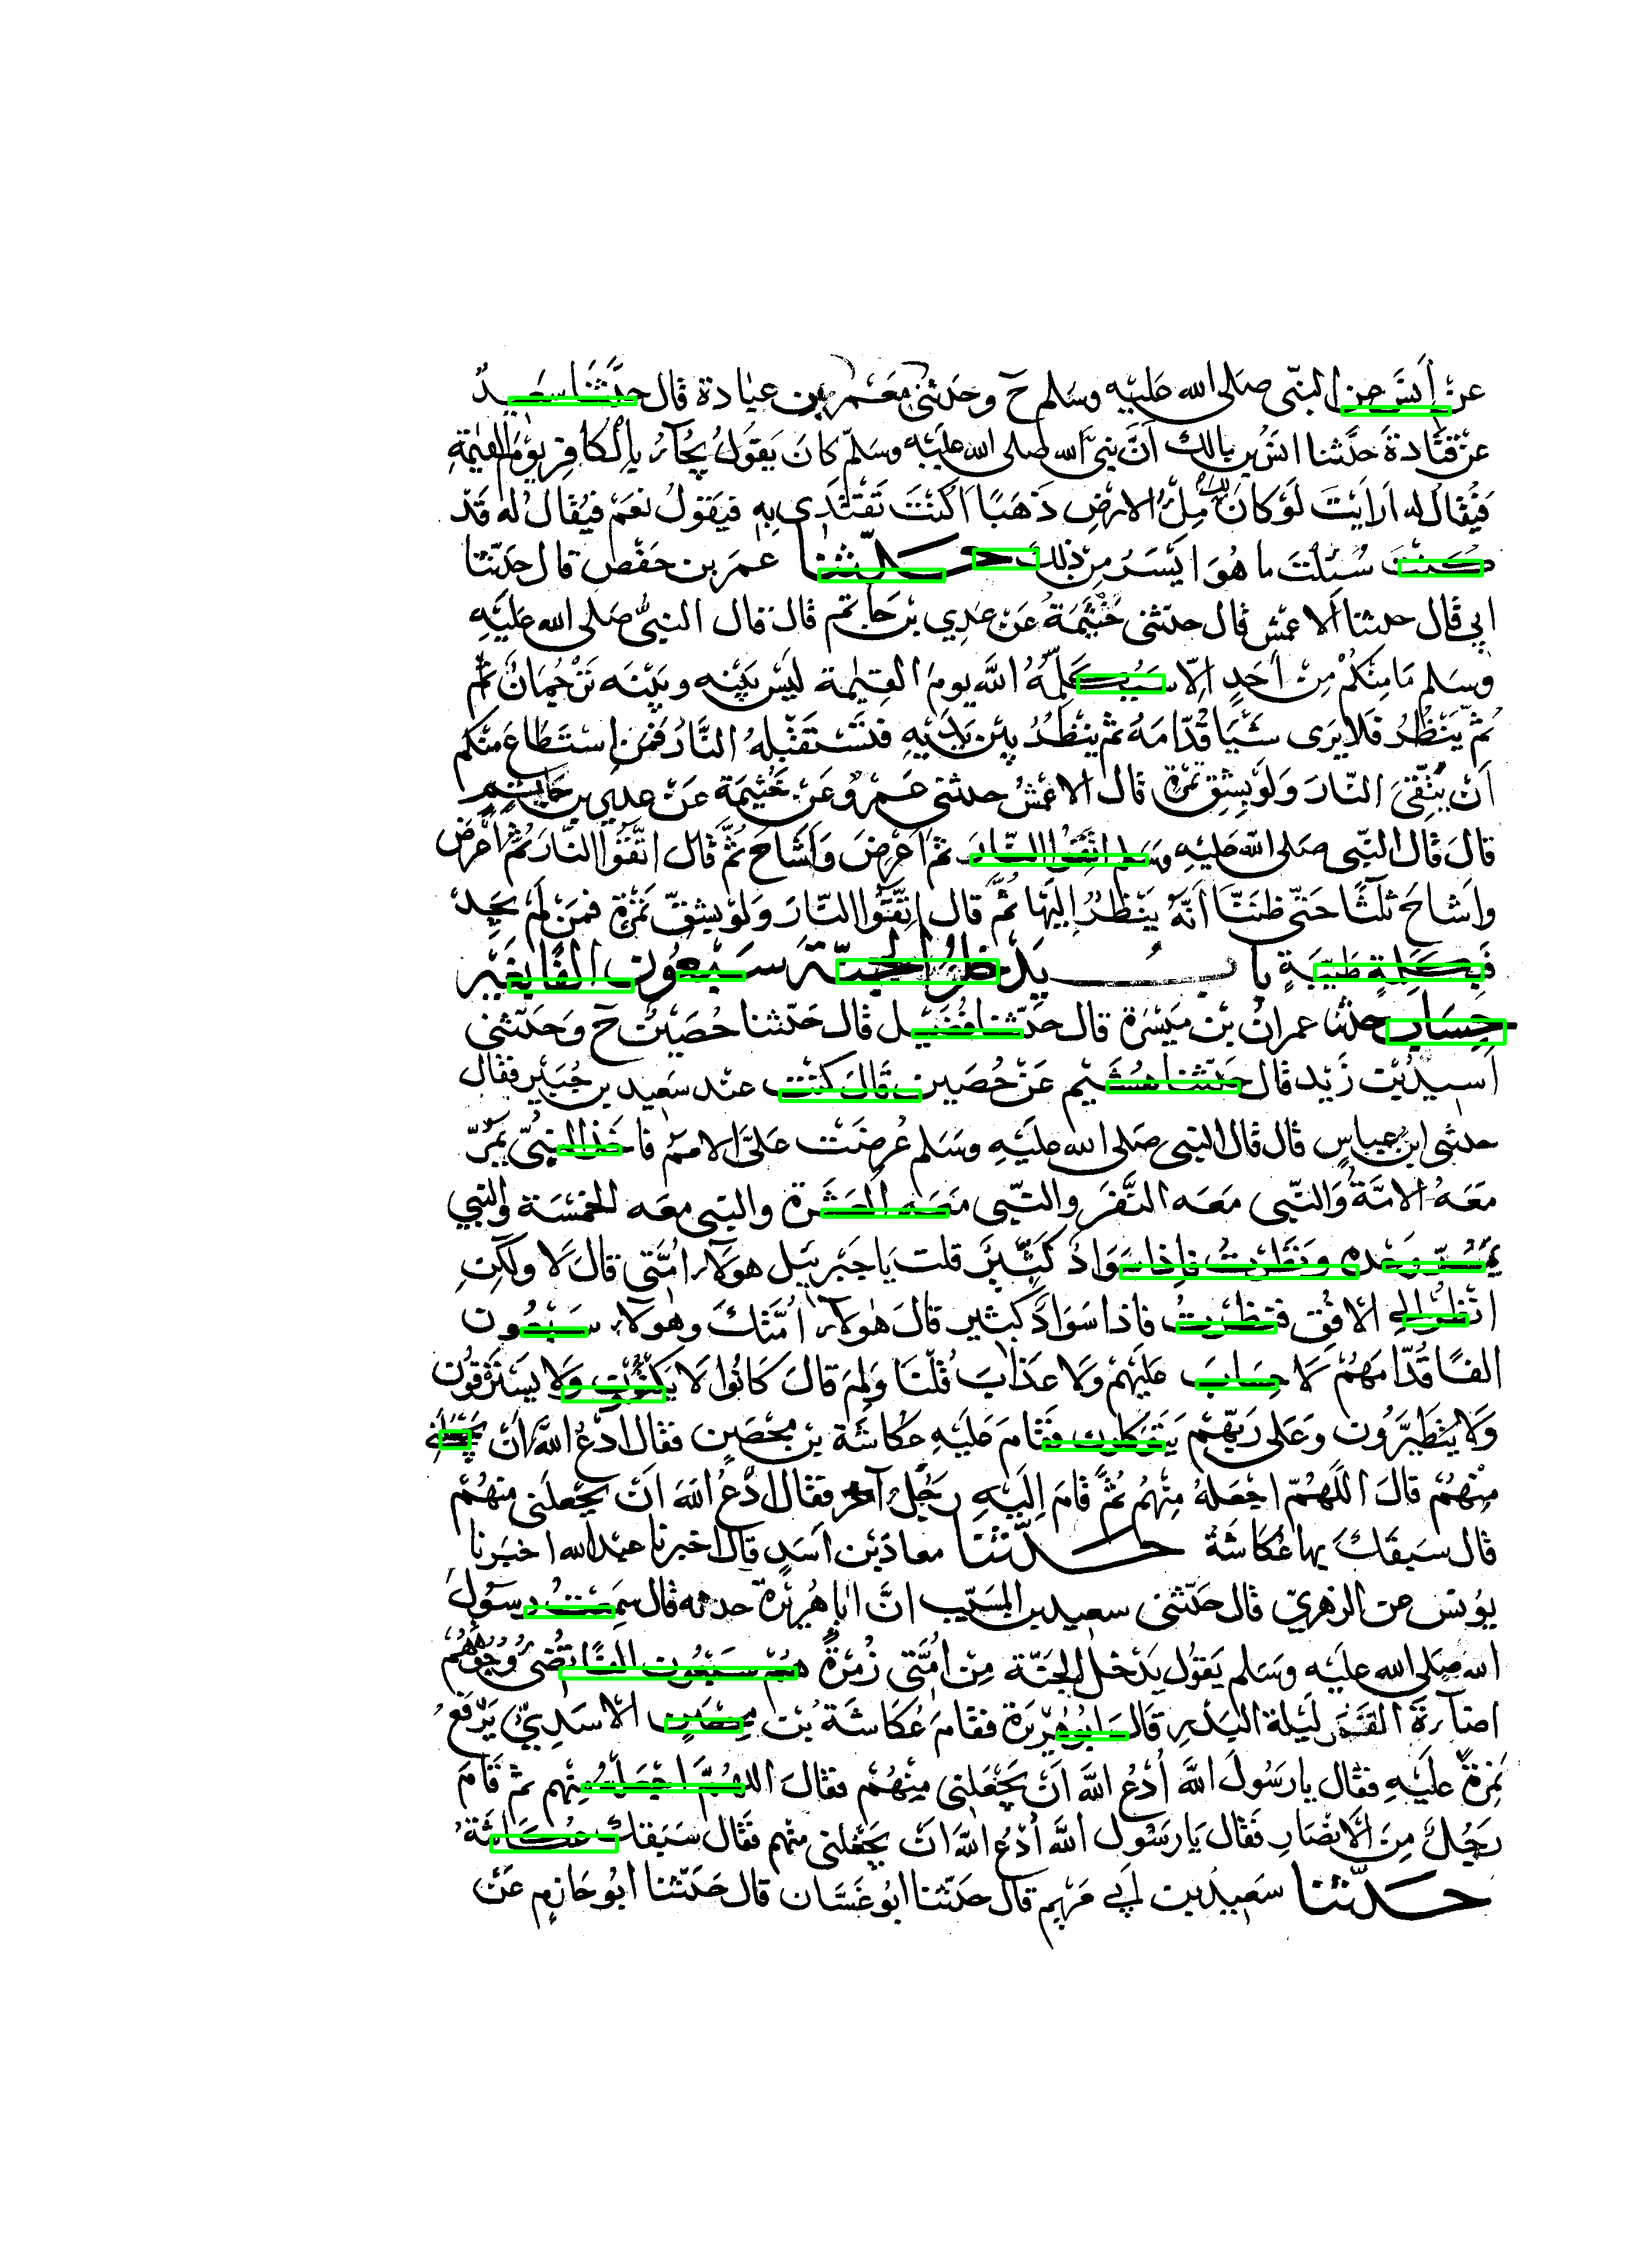 عَنْ أَنَسٍ عن النبّى صَلى الله عَليْه وسَلم حَ وحَدثنى مَعْمر بن عبادة قال حدَّثَنَا سَعِيدٌ
عَنْ قَتَادةَ حَدَّثنا انسُ بن مالك اَنَّ نبىَّ الله صلى الله عليْه وسَلّم كانَ يَقوُلُ يُجآءُ بِالكافِرِ يوْمَ القيٰمةِ
فَيُقال له اَرَايْتَ لَوْ كانَ لك مِلْءُ الارضِ ذَهَبًا اَكُنْتَ تَفْتَدِى بِهِ فيَقولُ نعَمْ فيُقالُ له قَدْ
كُنتَ سُئلْتَ ما هُوَ ايْسَرُ مِنْ ذلِكَ حَدّثنا عمَر بن حَفْص قال حَدّثنا
ابِي قال حدثنا اَلاعمش قال حدّثنى خَيْثَمَةُ عَنْ عَدِي بن حَاتِم قال قال النبىُّ صَلى الله عَليْهِ
وسَلم مَا مِنكُمْ مِنْ اَحَدٍ اِلّا سَيُكَلِّمُهُ اللَّهُ يومَ القِيٰمة ليْسَ بَيْنه وبَيْنَه تَرْجُمَانٌ ثم
ثُمّ يَنْظُرُ فَلا يَرى شَيْئًا قُدّامَهُ ثم يَنظُرُ بيْنَ يَدَيْهِ فتَسْتَقْبِلهُ النَّارُ فمَن اِسْتَطَاعَ منكم
اَنْ يَتّقىَ النّارَ وَلَوْ بِشِقِ تمْرَةٍ قال الاعمشُ حدثنى عَمْروٌ عَنْ خَيْثمَةَ عَنْ عدِي بن حَاتِمٍ
قالَ قال النّبى صَلى الله عَليْهِ وسَلم اتقوُا النّارَ ثم اَعْرَضَ وَاَشَاحَ ثُمَّ قال اتَّقوُا النَّارَ ثُمّ اَعْرَضَ
واَشاحَ ثلٰثًا حَتّى ظنَنَّا اَنّهُ يَنْظُرُ اِليْهَا ثُمَّ قال اتَّقوُا النّارَ وَلَوْ بشِقّ تمْرَةٍ فمَنْ لمْ يَجِدْ
فَبِكَلِمةٍ طَيّبَةٍ بابُ يَدْخلُ الجَنّةَ سَبْعُون الفًا بغَيْرِ
حِسَاب حدثنا عمرانُ بن مَيْسَرة قال حدّثنا فُضَيْل قال حَدّثنا حُصَيْن حَ وحَدّثنى
اسيدُ بْن زَيْد قال حَدّثنا هُشَيْم عَنْ حُصَين قَالَ كنتُ عنْد سَعِيد بن جُبَيْر فقال
حدثنى ابن عباسٍ قال قال النبى صَلى الله عليْهِ وسَلم عُرضَت علىَّ الامَمُ فاخَذ النبىّ يَمُرّ
معَهُ الامّةُ وَالنّبى مَعَه النَّفَرَ والنّبى مَعَه العَشَرة والنبى معَه الخمسَة والنبي
يمُرّ وَحْدَه ونَظَرْتُ فاِذا سَوَادٌ كَثِيْرٌ قلت يَا جَبْريَيل هولآء امُّتى قال لَا ولٰكِنِ
انْظُر الى الافُقِ فنَظرتُ فاذا سَوَادٌ كَثير قالَ هولآء اُمَّتكَ وهولآء سَبْعُون
الفًا قُدّامَهُمْ لَا حِسَابَ عَليْهمْ وَلا عَذَابَ قُلْتَا وَلِمَ قالَ كَانُوا لَا يَكْتَوُون وَلا يسْتَرْقوُن
وَلَا يَتَطَيَّرُونَ وَعَلى رَبّهِمْ يَتَوَكلون فقَامَ عَليْهِ عُكاشَة بن محْصَنٍ فقال ادعُ اللهَ اَنْ يَجْعَلَنِي
مِنْهُمْ قالَ اللَهُمّ اجْعَلهُ مِنْهُم ثُمَّ قَامَ اِليْهِ رَجُلٌ آخر فقال ادْعُ اللهَ اَنْ يجْعلنى منهُمْ
قال سَبقَكَ بها عُكَاشَة حَدّثنا معاذ بْن اَسَد قال اخبرنا عبد الله اخبَرنا
يوُنسَ عن الزهرىّ قال حَدّثنى سعيد بن المسَيّب انَّ ابا هُريْرةَ حدثه قال سَمِعْتُ رسوُل
الله صلى الله عليْه وسَلم يَقوُل يَدْخلُ الجَنّة مِنْ امُّتى زُمْرةٌ هُمْ سَبْعُون الفًا تضُىُ وُجُوُهُهُمْ
اضآءَةَ القمَر ليْلة البَدْرِ قالَ ابو هُرَيْرَة فقامَ عُكاشَة بْن مِحْصَنٍ الاسَدِىّ يَرْفَعُ
نمِرَةً عليْهِ فقال يا رَسُول اللَّه اُدْعُ اللَّهَ اَنْ يَجْعَلنى مِنهُمْ فقَال اللهُمَّ اجْعَلهُ مِنْهم ثمَ قَامَ
رَجُلٌ مِنَ الاَنصَارِ فقال يَا رسُول اللَّه اُدْعُ اللهَ اَنْ يَجْعلنى منهم فقال سَبَقك عُكاشَةُ
حَدّثنا سَعِيدُ بن اَبي مَرْيَم قال حَدّثنا ابُو غَسّان قال حَدّثنا ابُو حَازم عَنْ